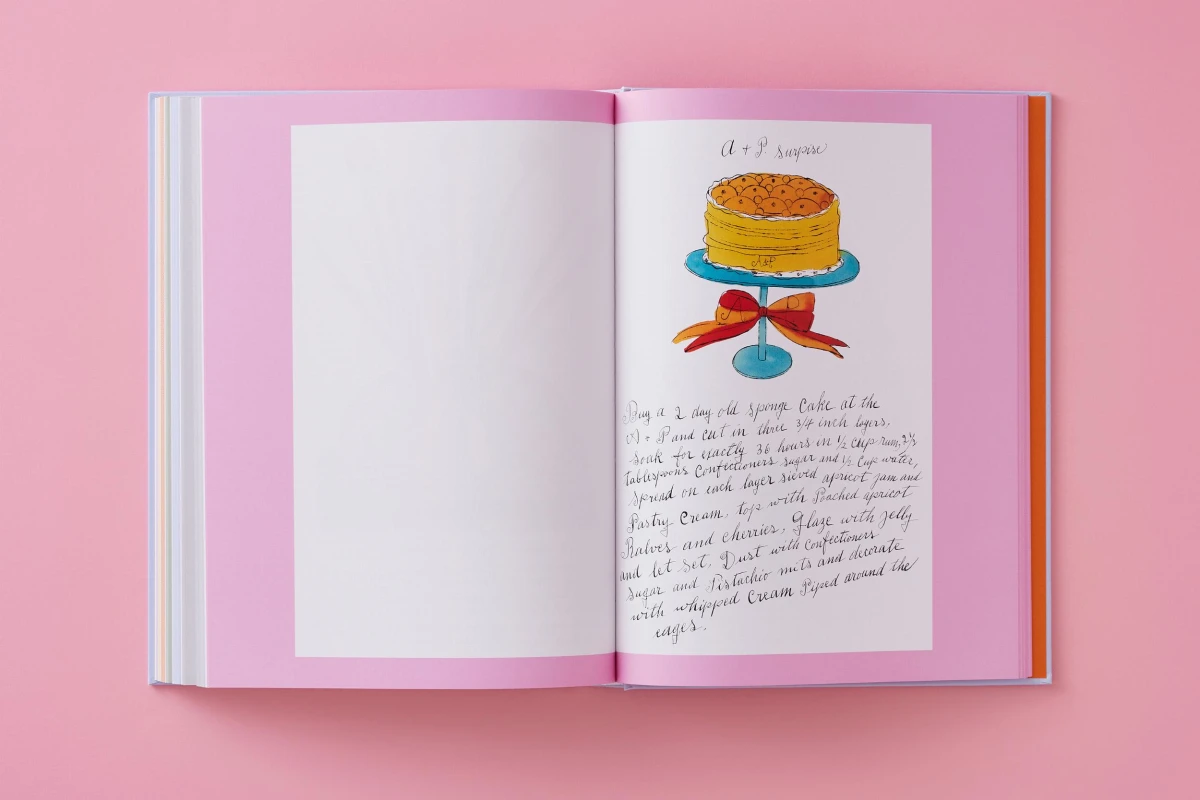 A + P. Surpise
A&P
A P
Buy a 2 day old sponge Cake at the
A + P and cut in three 3/4 inch layers.
Soak for exactly 36 hours in 1/2 Cup rum,
tablespoons Confectioners sugar and 1/2 Cup water,
Spread on each layer sieved apricot jam and
Pastry Cream, top with Poached apricot
Halves and cherries, Glaze with Jelly
and let set. Dust with confectioners
sugar and Pistachio nuts and decorate
with whipped Cream Piped around the
edges.